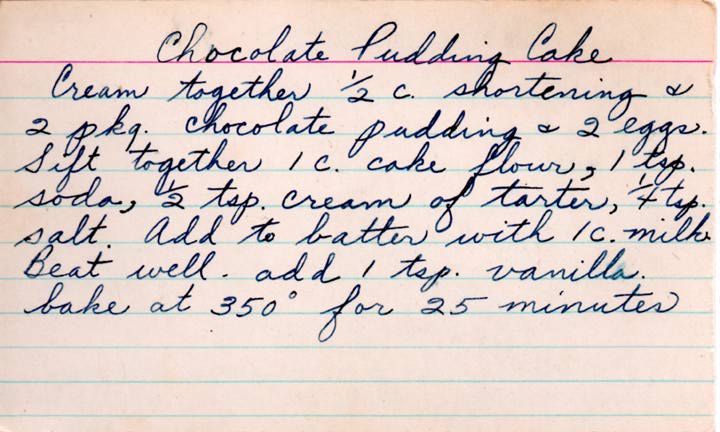 Chocolate Pudding Cake
Cream together 1/2 c. shortening &
2 pkg. chocolate pudding & 2 eggs.
Sift together 1 c. cake flour, 1 tsp.
soda, 1/2 tsp. cream of tarter, 1/4 tsp.
salt. Add to batter with 1 c. milk.
Beat well. add 1 tsp. vanilla.
bake at 350° for 25 minutes